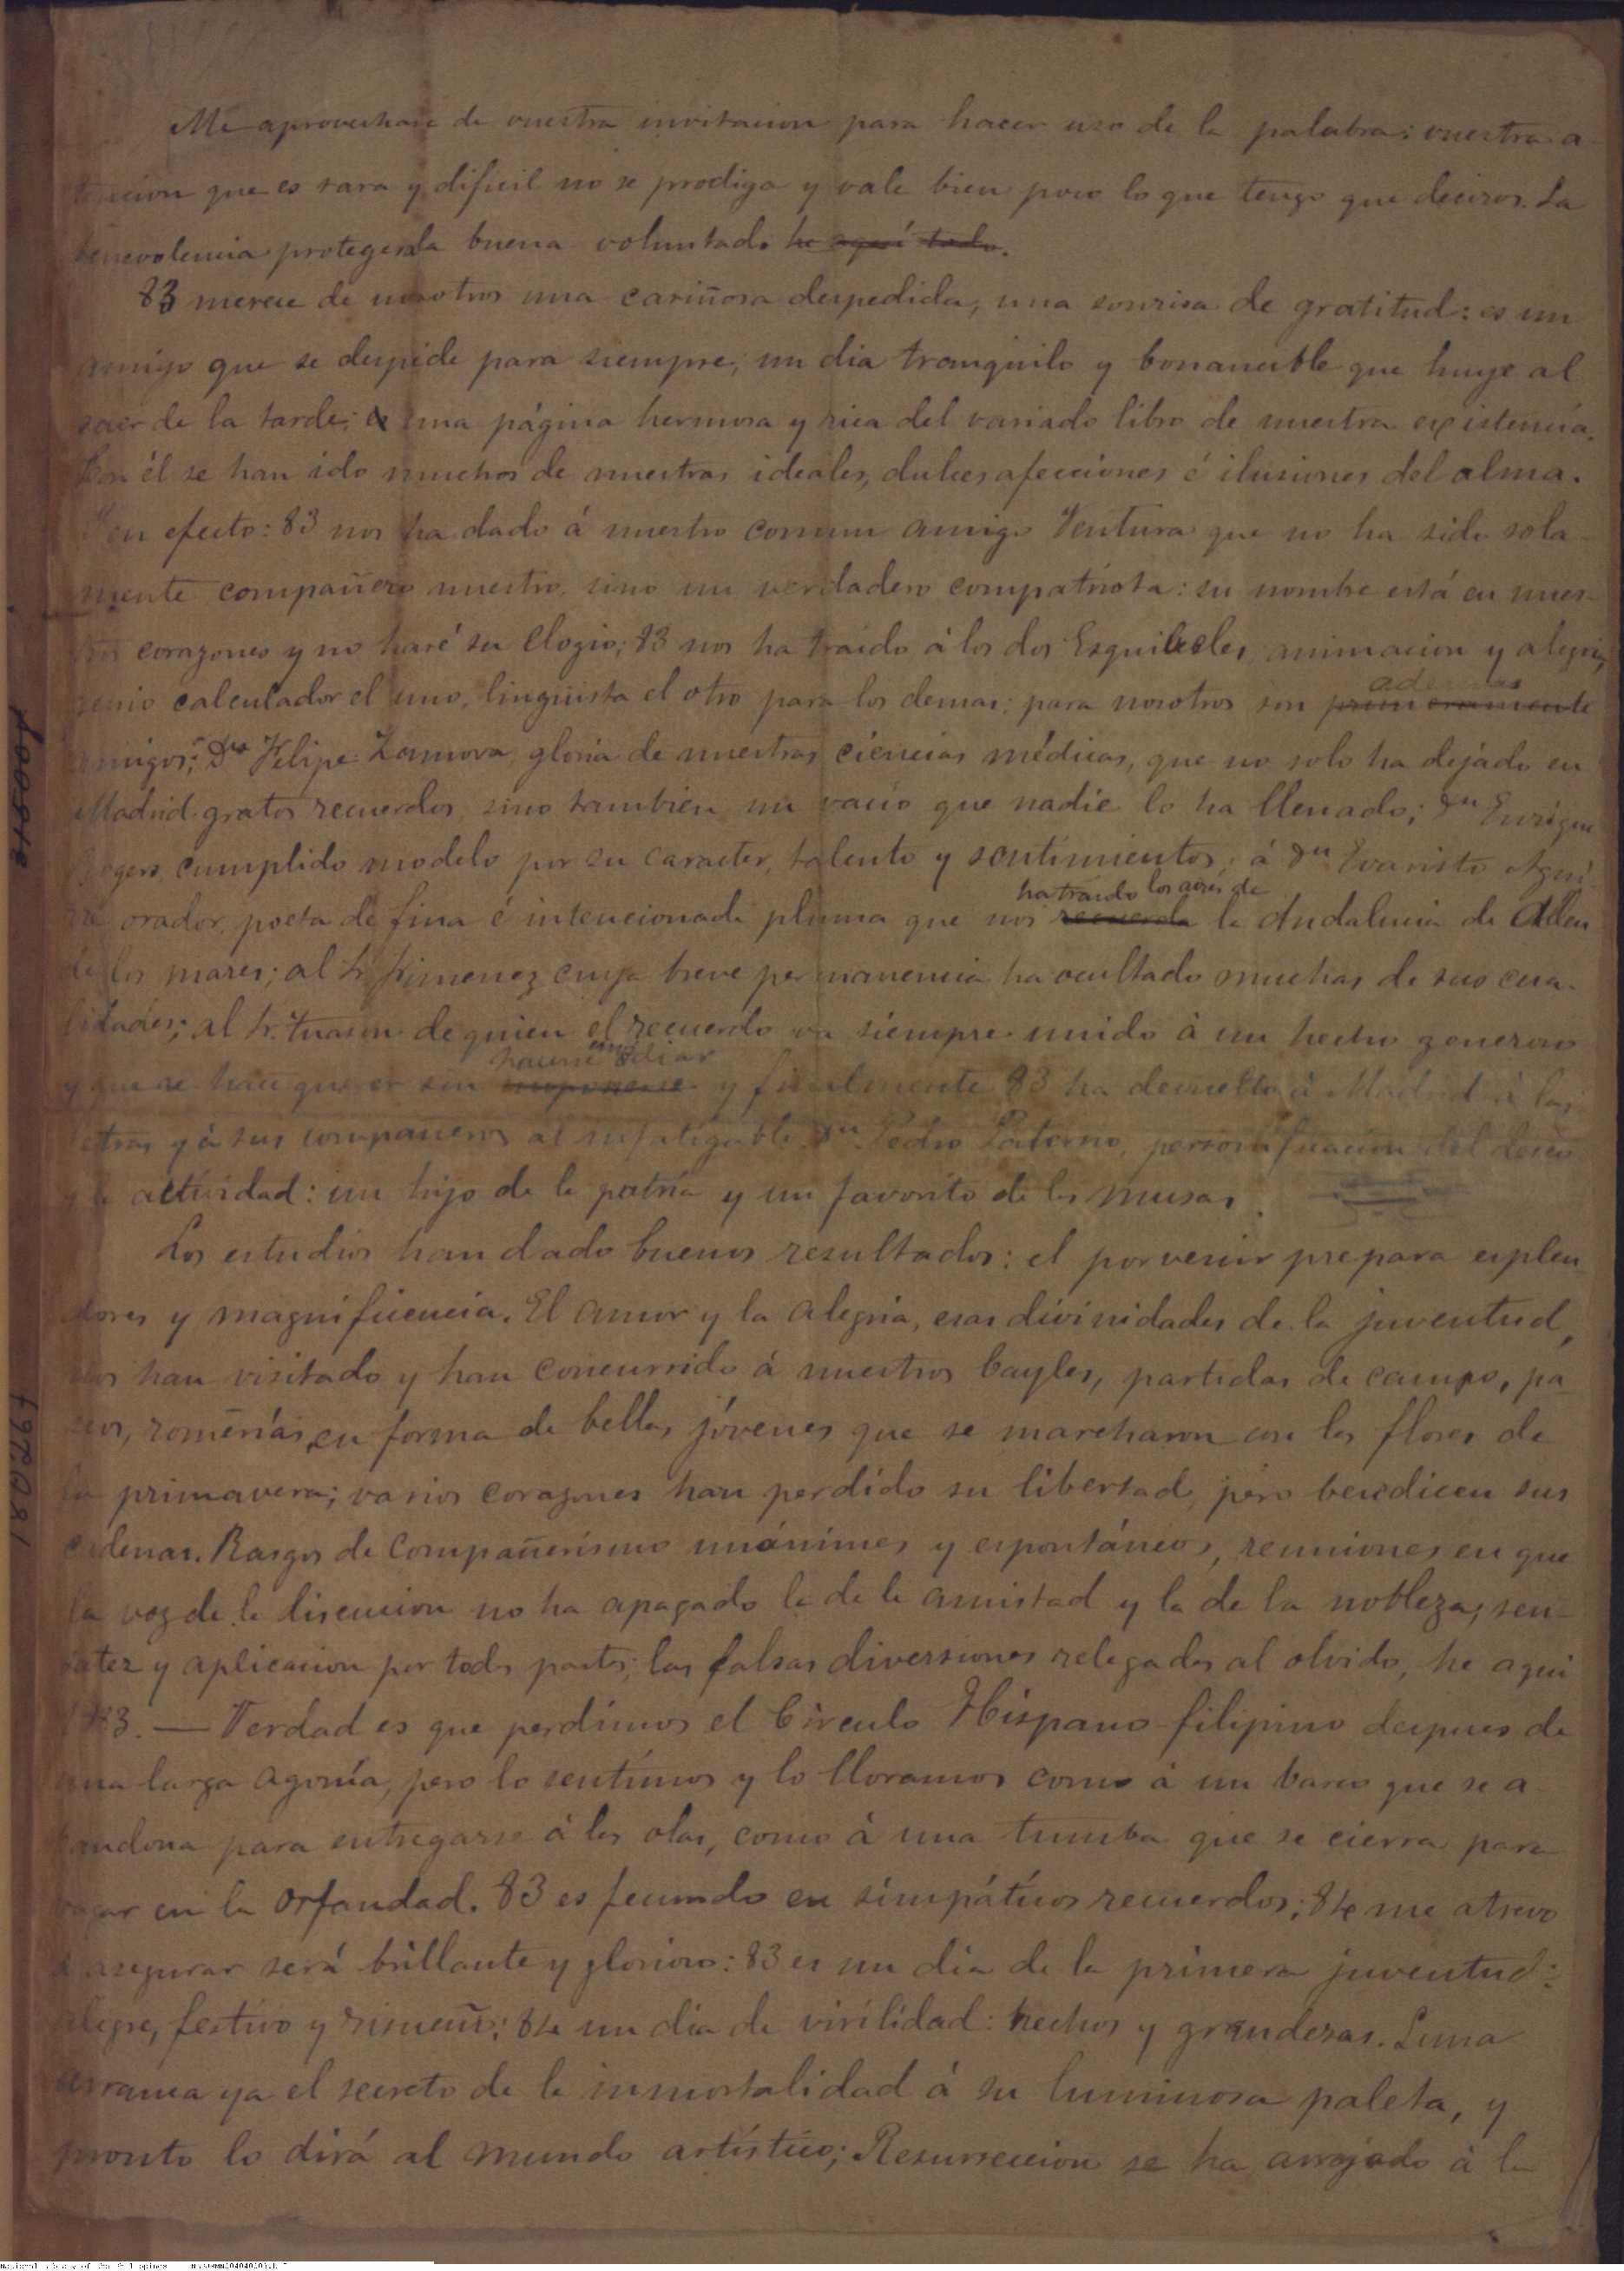 Me aprovechare de vuestra invitacion para hacer uso de la palabra: vuestra a-
tencion que es rara y dificil no se prodiga y vale bien poco lo que tengo que deciros. La
benevolencia protegerá la buena voluntad. he aquí todo.
83 merece de nosotros una cariñosa despedida, una sonrisa de gratitud: es un
amigo que se despide para siempre, un dia tranquilo y bonancible que huye al
caer de la tarde; es una página hermosa y rica del variado libro de nuestra existencia.
Con él se han ido muchos de nuestros ideales, dulces afecciones é ilusiones del alma.
Y en efecto: 83 nos ha dado á nuestro comun amigo Ventura que no ha sido sola-
mente compañero nuestro, sino un verdadero compatriota: su nombre está en nues-
tros corazones y no haré su elogio; 83 nos ha traido á los dos Esquibeles, animacion y alegria,
genio calculador el uno, lingüista el otro para los demas: para nosotros son primeramente
ademas
amigos; Dn Felipe Zamora, gloria de nuestras ciencias médicas, que no solo ha dejado en
Madrid gratos recuerdos, sino tambien un vacio que nadie lo ha llenado; Dn Enrique
Rogers, cumplido modelo por su caracter, talento y sentimientos; á Dn Evaristo Agui-
rre orador, poeta de fina é intencionada pluma que nos recuerda la Andalucia de allen
ha traido los aires de
de los mares; al Sr. Jimenez cuya breve permanencia ha ocultado muchas de sus cua-
lidades; al Sr. Tuason de quien el recuerdo va siempre unido á un hecho generoso
y que se hace querer sin imponerse y finalmente 83 ha devuelto á Madrid á las
hacerse odiar
letras y á sus compañeros al infatigable Dn Pedro Paterno, personificacion del deseo
y la actividad: un hijo de la patria y un favorito de las musas.
Los estudios han dado buenos resultados: el porvenir prepara esplen-
dores y magnificencia. El amor y la alegria, esas divinidades de la juventud,
nos han visitado y han concurrido á nuestros bayles, partidas de campo, pa-
seos, romerías, en forma de bellas jóvenes que se marcharon con las flores de
la primavera; varios corazones han perdido su libertad, pero bendicen sus
cadenas. Rasgos de compañerismo unánimes y espontáneos, reuniones en que
la voz de la discucion no ha apagado la de la amistad y la de la nobleza; sen-
satez y aplicacion por todas partes; las falsas diversiones relegadas al olvido, he aqui
83. — Verdad es que perdimos el Circulo Hispano-filipino despues de
una larga agonía, pero lo sentimos y lo lloramos como á un barco que se a-
bandona para entregarse á las olas, como á una tumba que se cierra para
vagar en la orfandad. 83 es fecundo en simpáticos recuerdos; 84 me atrevo
á asegurar será brillante y glorioso: 83 es un dia de la primera juventud:
alegre, festivo y risueño; 84 un dia de virilidad: hechos y grandezas. Luna
arranca ya el secreto de la inmortalidad á su luminosa paleta, y
pronto lo dirá al mundo artístico; Resurreccion se ha arrojado á la